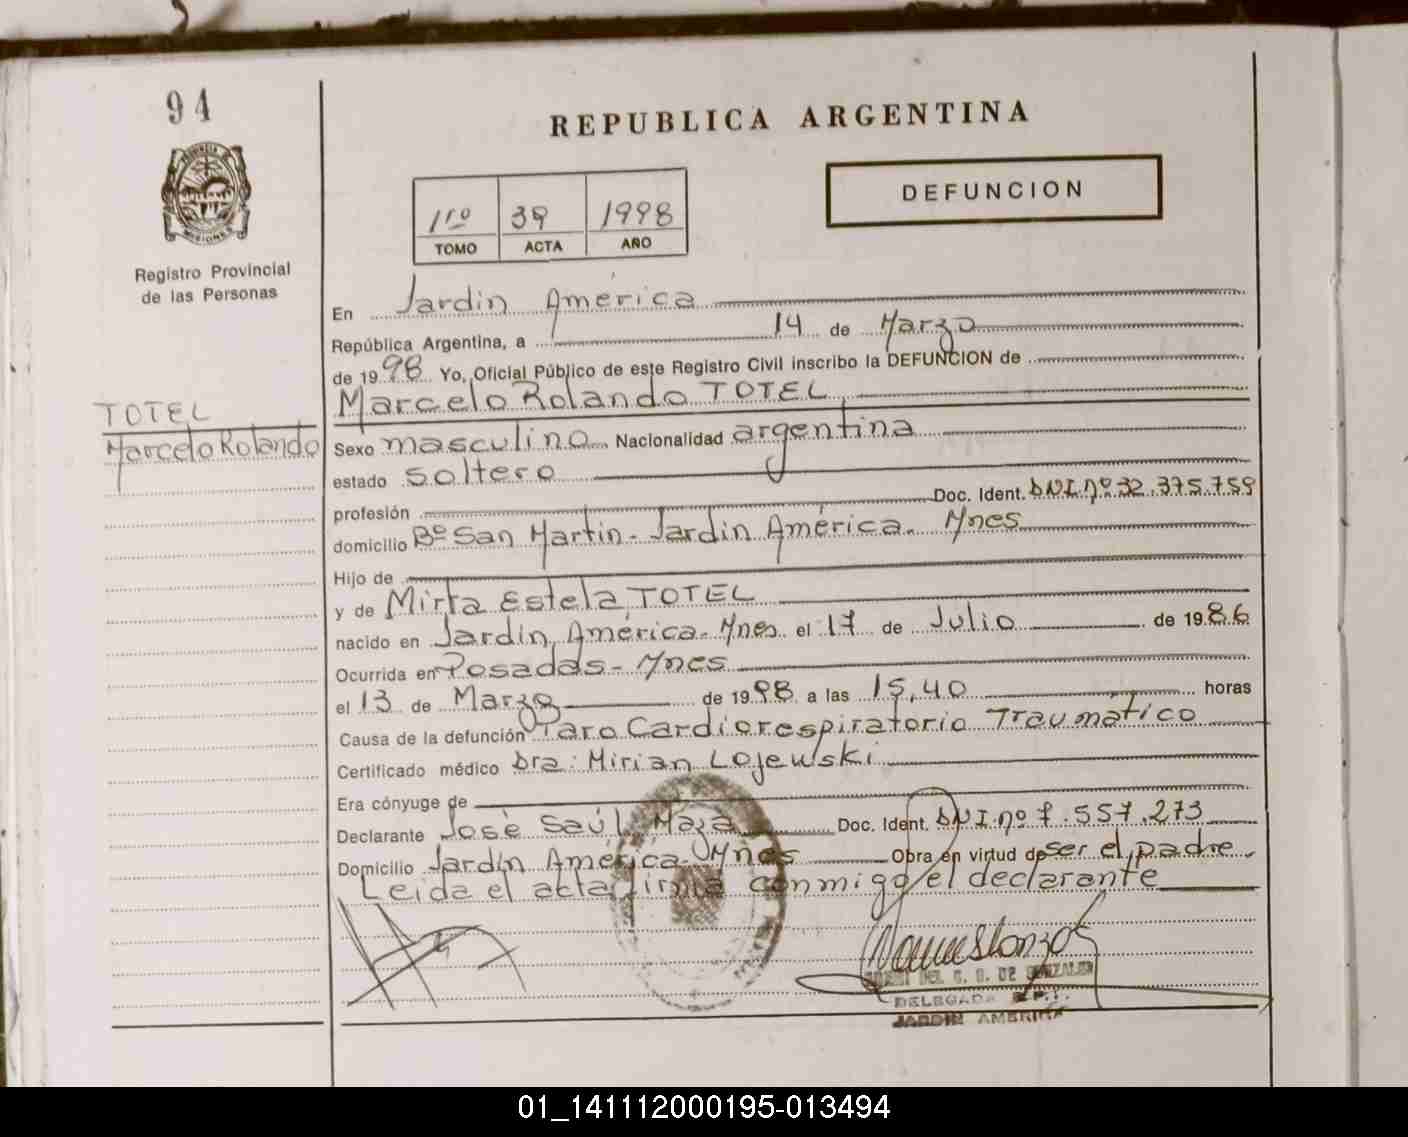 94
REPUBLICA ARGENTINA
PROVINCIA DE
MISIONES
Registro Provincial
de las Personas
DEFUNCION
1ro 39 1998
TOMO ACTA AÑO
En Jardin América
República Argentina, a 14 de Marzo
de 1998 Yo, Oficial Público de este Registro Civil inscribo la DEFUNCION de
Marcelo Rolando TOTEL
TOTEL
Marcelo Rolando
Sexo masculino Nacionalidad argentina
estado soltero
profesión Doc. Ident. DNI nº 32.375.759
domicilio Bº San Martin - Jardin América. Mnes
Hijo de
y de Mirta Estela TOTEL
nacido en Jardin América - Mnes el 17 de Julio de 1986
Ocurrida en Posadas - Mnes
el 13 de Marzo de 1998 a las 15,40 horas
Causa de la defunción Paro Cardiorespiratorio Traumático
Certificado médico Dra: Mirian Lojewski
Era cónyuge de
Declarante José Saúl Maza Doc. Ident. DNI nº 7.557.273
Domicilio Jardin América - Mnes Obra en virtud de ser el padre
Leida el acta firma conmigo el declarante
DEL C. G. DE GONZALEZ
DELEGADA R.P.
JARDIN AMERICA
01_141112000195-013494